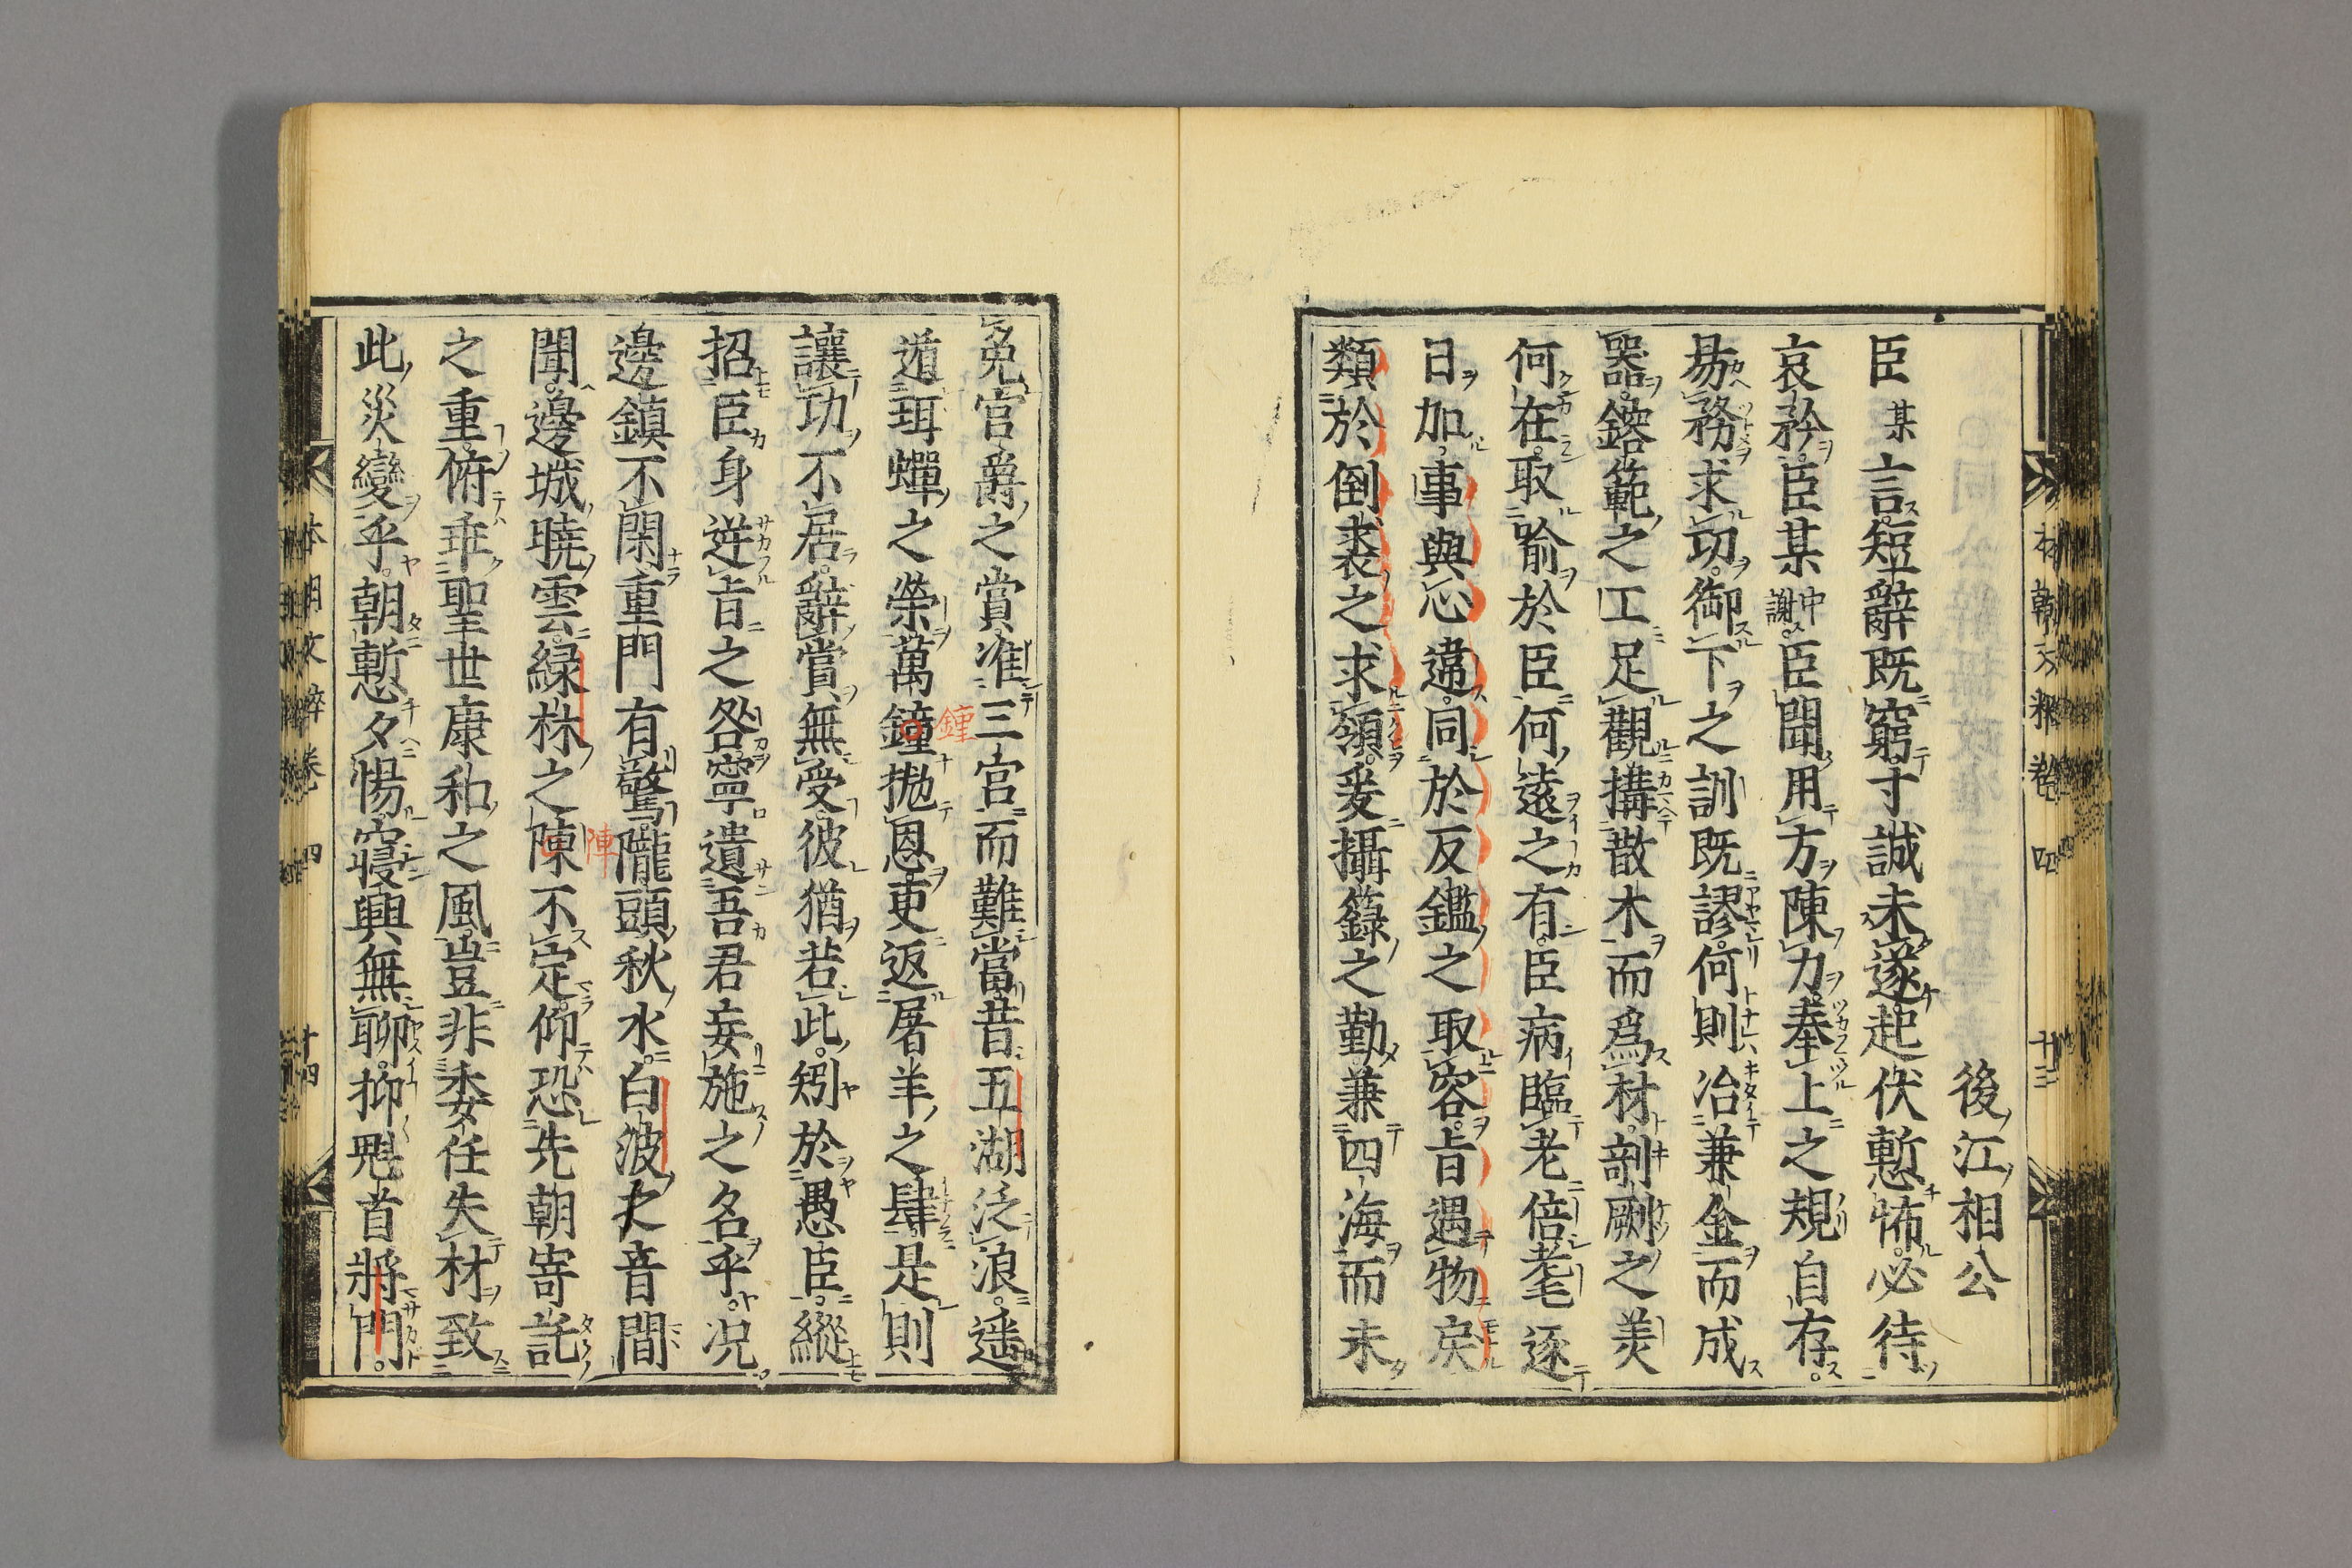 後江相公
臣某言短辭既窮寸誠未遂起伏慙怖必待
哀矜臣某中謝臣聞用方陳力奉上之規自存
易務求功御下之訓既謬何則冶兼金而成
器鎔範之工足觀搆散木而爲材剞劂之美
何在取喩於臣何遠之有臣病臨老倍耄逐
日加事與心違同於反鑑之取容旨遇物戾
類於倒裘之求領爰攝籙之勤兼四海而未
本朝文粹卷四 十三
免官爵之賞准三宮而難當昔五湖泛浪遥
遁珥蟬之榮萬鐘抛恩更返屠羊之肆是則
鍾
讓功不居辭賞無受彼猶若此矧於愚臣縱
招臣身逆旨之咎寧遺吾君妄施之名乎况
邊鎮不閑重門有驚隴頭秋水白波之音間
聞邊城曉雲緑林之陳不定仰恐先朝寄託
陣
之重俯乖聖世康和之風豈非委任失材致
此災變乎朝慙夕惕寢興無聊抑魁首將門
本朝文粹卷四 十四